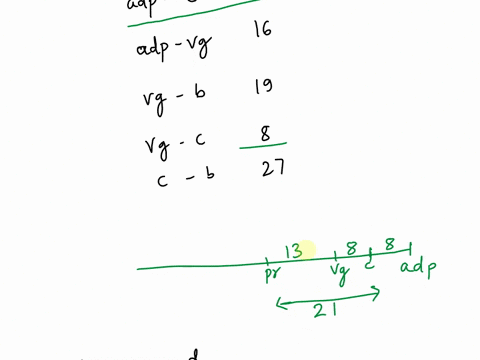 adp -
adp - vg 16
vg - b 19
vg - c 8
c - b 27
13 8 8
pr vg c adp
21